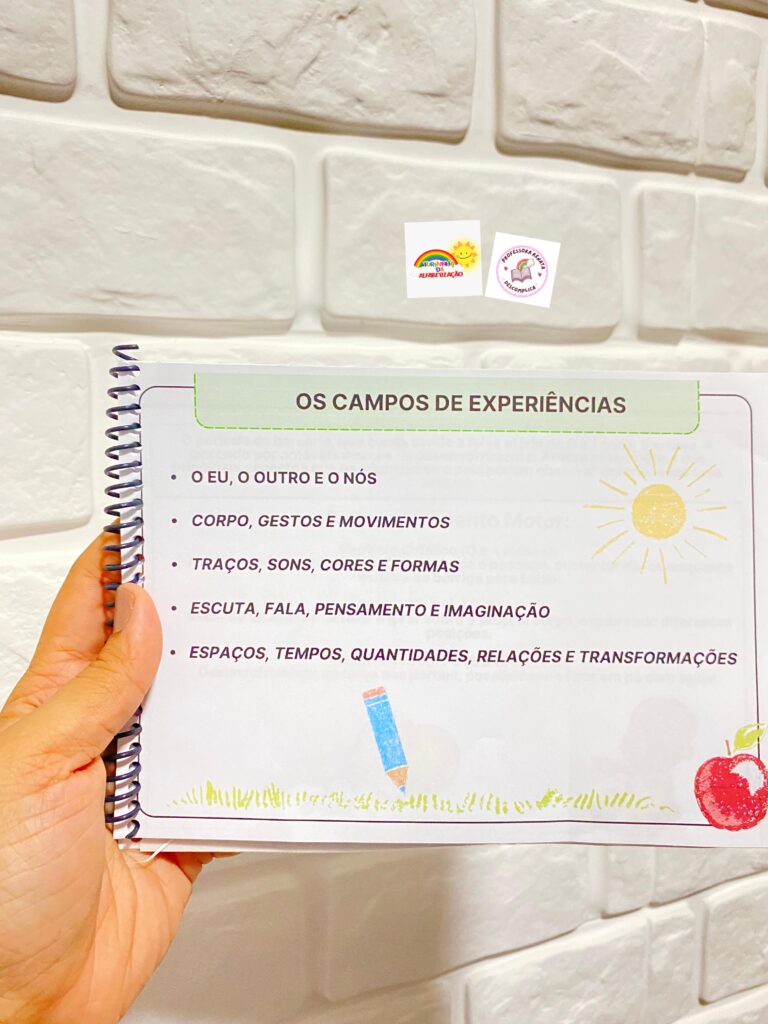 ALFABETIZAÇÃO
PROFESSORA RENATA
DESCOMPLICA
OS CAMPOS DE EXPERIÊNCIAS
• O EU, O OUTRO E O NÓS
• CORPO, GESTOS E MOVIMENTOS
• TRAÇOS, SONS, CORES E FORMAS
• ESCUTA, FALA, PENSAMENTO E IMAGINAÇÃO
• ESPAÇOS, TEMPOS, QUANTIDADES, RELAÇÕES E TRANSFORMAÇÕES